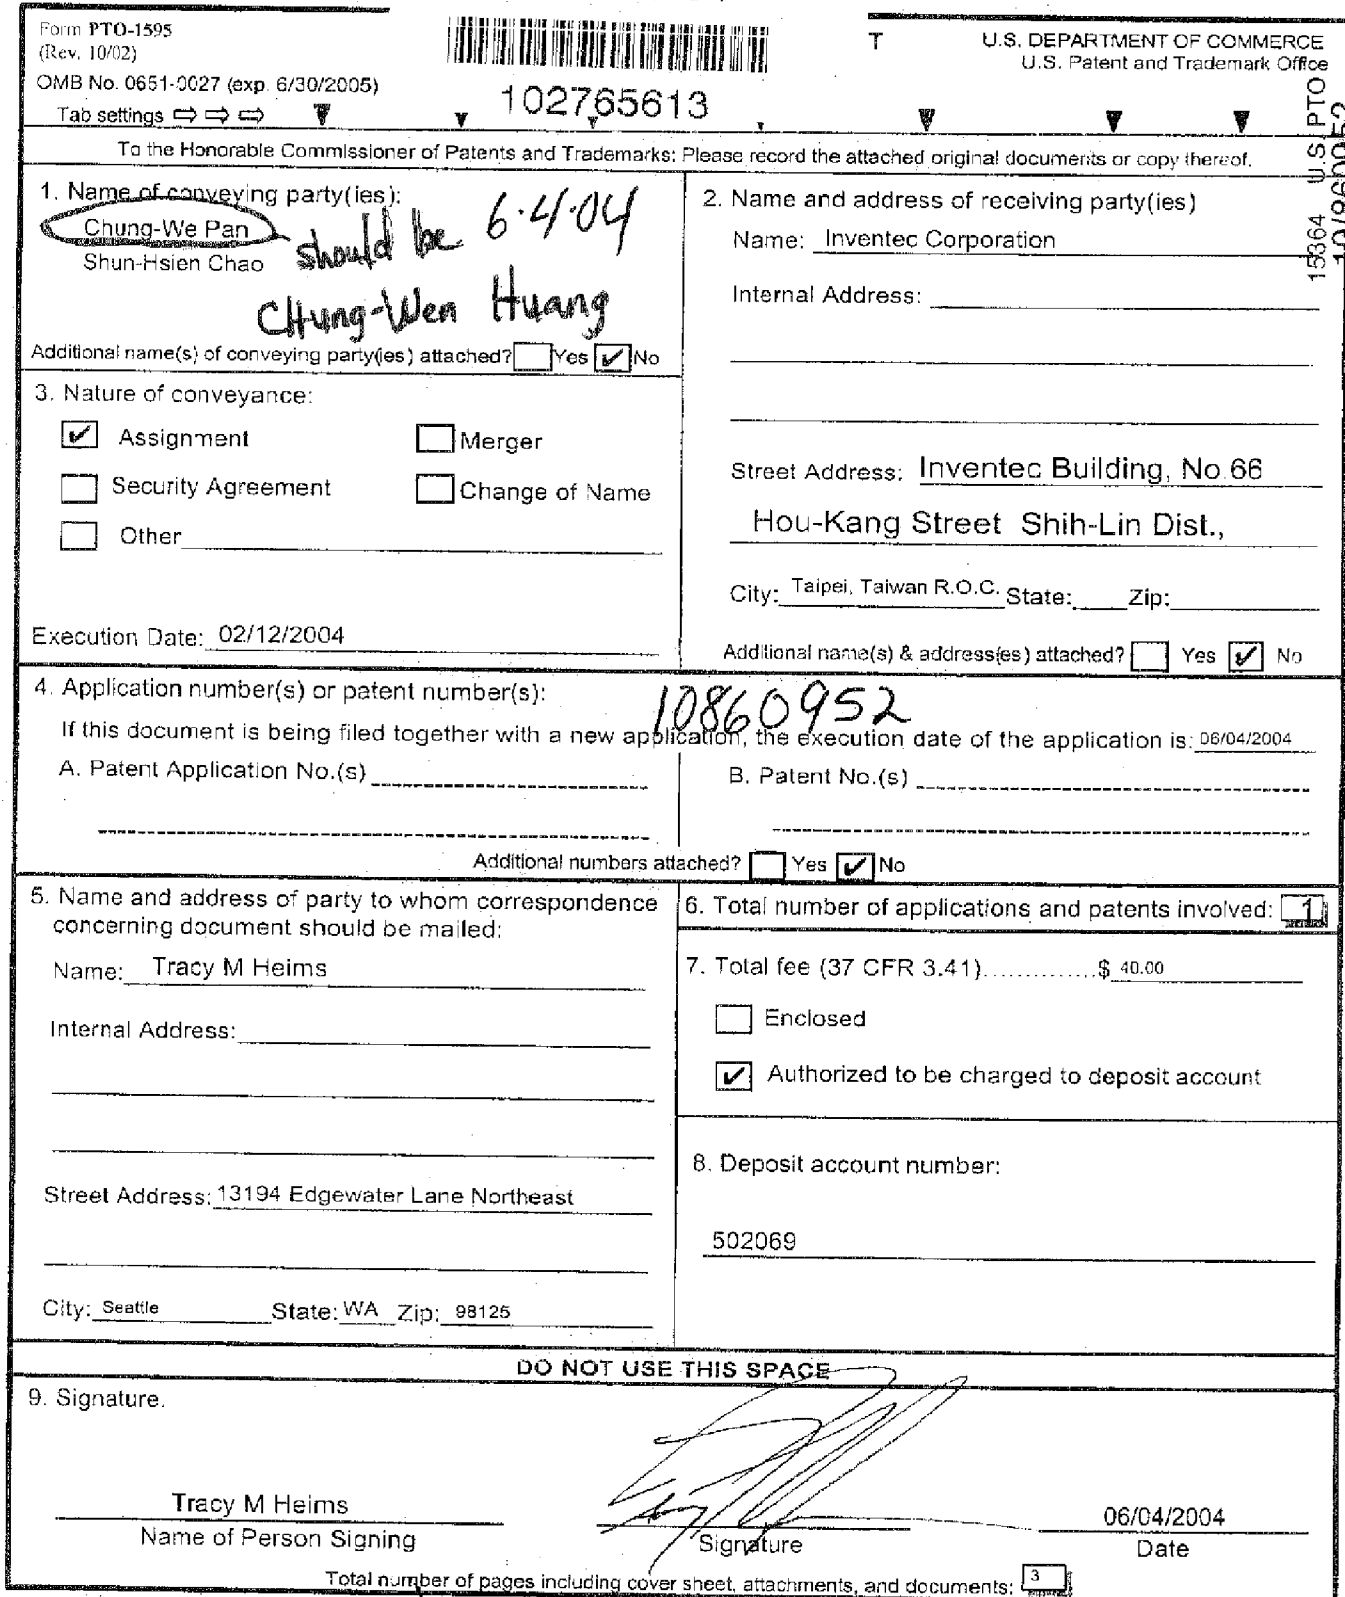 Form PTO-1595
(Rev. 10/02)
OMB No. 0651-0027 (exp. 6/30/2005)
Tab settings ⇨ ⇨ ⇨
102765613
T
U.S. DEPARTMENT OF COMMERCE
U.S. Patent and Trademark Office
15364 U.S. PTO
10/860952
To the Honorable Commissioner of Patents and Trademarks: Please record the attached original documents or copy thereof.
1. Name of conveying party(ies):
Chung-We Pan
Shun-Hsien Chao
should be 6-4-04
CHung-Wen Huang
Additional name(s) of conveying party(ies) attached? Yes ✔ No
2. Name and address of receiving party(ies)
Name: Inventec Corporation
Internal Address:
Street Address: Inventec Building, No.66
Hou-Kang Street Shih-Lin Dist.,
City: Taipei, Taiwan R.O.C. State: Zip:
Additional name(s) & address(es) attached? Yes ✔ No
3. Nature of conveyance:
✔ Assignment Merger
Security Agreement Change of Name
Other
Execution Date: 02/12/2004
4. Application number(s) or patent number(s):
10860952
If this document is being filed together with a new application, the execution date of the application is: 06/04/2004
A. Patent Application No.(s)
B. Patent No.(s)
Additional numbers attached? Yes ✔ No
5. Name and address of party to whom correspondence
concerning document should be mailed:
Name: Tracy M Heims
Internal Address:
Street Address: 13194 Edgewater Lane Northeast
City: Seattle State: WA Zip: 98125
6. Total number of applications and patents involved: 1
7. Total fee (37 CFR 3.41)..............$ 40.00
Enclosed
✔ Authorized to be charged to deposit account
8. Deposit account number:
502069
DO NOT USE THIS SPACE
9. Signature.
Tracy M Heims
Name of Person Signing
Signature
06/04/2004
Date
Total number of pages including cover sheet, attachments, and documents: 3